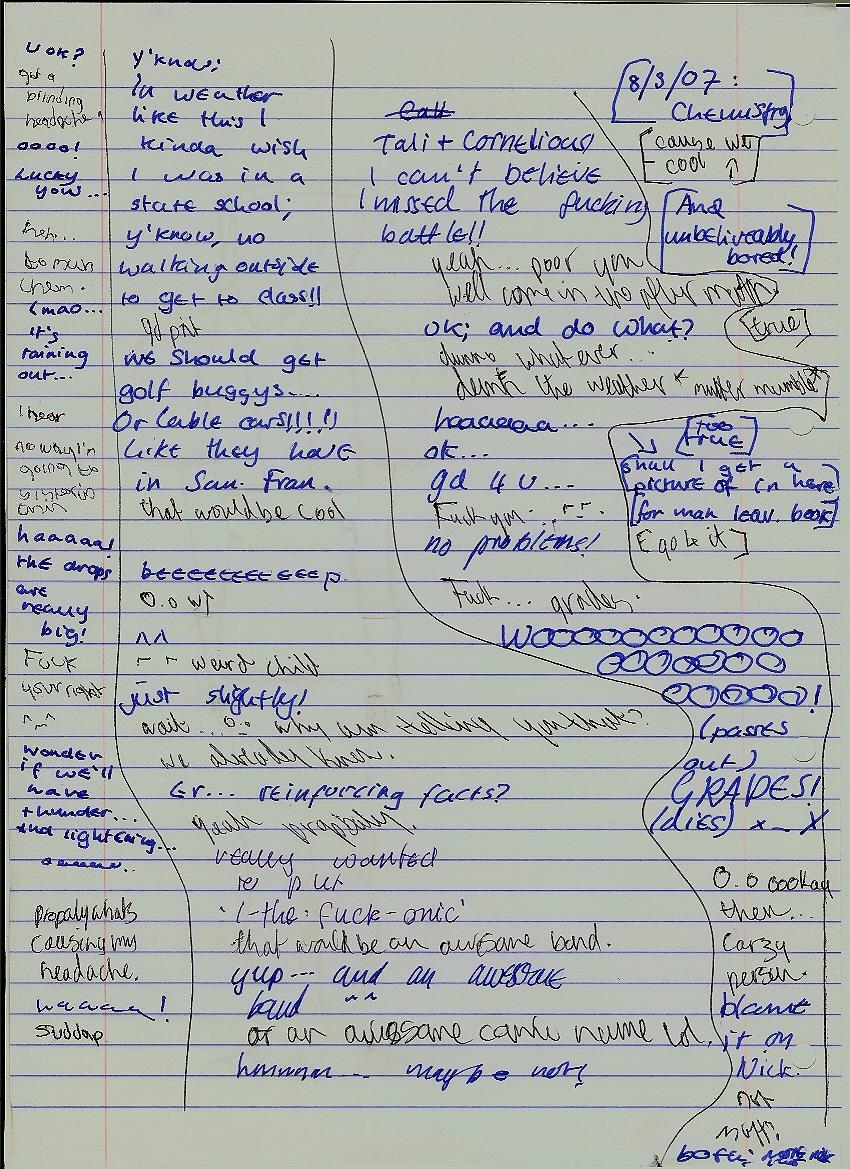 8/3/07:
Chemistry
[cause we
cool ↑]
[And
unbeliveably
bored!]
u ok?
got a
blinding
headache
oooo!
Lucky
you...
heh...
chem.
lmao...
it's
raining
out...
I hear
no way I'm
going to
haaaaa!
the drops
are
really
big!
Fuck
your right
^-^
wonder
if we'll
have
thunder...
And lightening...
Propaly whats
causing my
headache.
waaaaa!
y'know;
In weather
like this I
kinda wish
I was in a
state school;
y'know, no
walking outside
to get to class!!
gd pnt
we should get
golf buggys....
Or Cable cars!!!!!
Like they have
in San. Fran.
that would be cool
beeeeeeeeeep.
O.o wt
^^
weird child
just slightly!
wait... why am I telling you that?
we already know.
Er... reinforcing facts?
yeah propably.
really wanted
to put
'1-the:fuck-onic'
that would be an awesome band.
yup... and an awesome
band ^^
or an awesome comic name lol.
hmmmm... maybe not!
Call
Tali + Cornelious
I can't believe
I missed the fucking
battle!!
yeah... poor you
Well come in the after
ok; and do what?
[true]
dunno what ever...
the weather *mutter mumble*
haaaaaa...
ok...
gd 4 u...
Fuck you...
no problems!
[too
true]
shall I get a
picture of in here
for man leav. book]
[go 4 it]
Fuck... grades.
Wooooooooooo
ooooooo
ooooo!
(passes
out)
GRAPES!
(dies) x_X
O.o ookay
then...
carzy
person.
blame
it on
Nick.
not